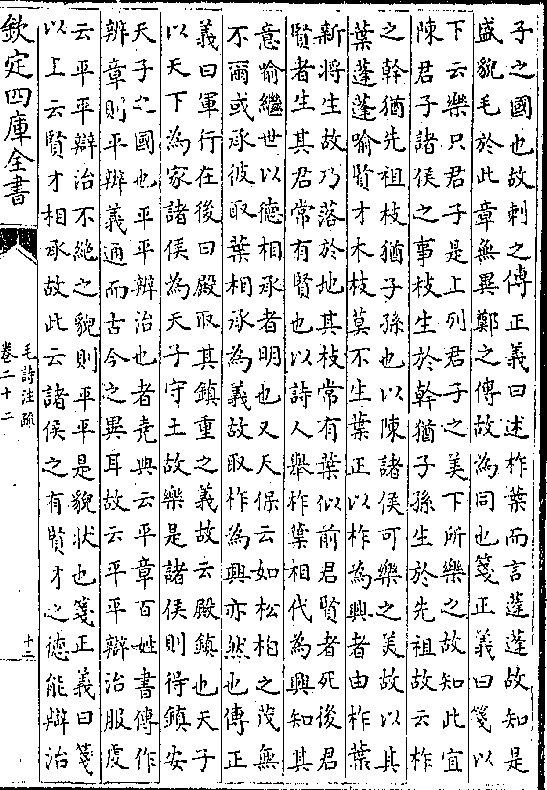 子之國也故刺之傳正義曰述柞葉而言蓬蓬故知是
盛貌毛於此章無異鄭之傳故為同也箋正義曰箋以
下云樂只君子是上列君子之美下所樂之故知此宜
陳君子諸侯之事枝生於幹猶子孫生於先祖故云柞
之幹猶先祖枝猶子孫也以陳諸侯可樂之美故以其
葉蓬蓬喻賢才木枝莫不生葉正以柞為興者由柞葉
新將生故乃落於地其枝常有葉似前君賢者死後君
賢者生其君常有賢也以詩人舉柞葉相代為興知其
意喻繼世以德相承者明也又天保云如松柏之茂無
不爾或承彼取葉相承為義故取柞為興亦然也傳正
義曰軍行在後曰殿取其鎮重之義故云殿鎮也天子
以天下為家諸侯為天子守土故樂是諸侯則得鎮安
天子之國也平平辨治也者堯典云平章百姓書傳作
辨章則平辨義通而古今之異耳故云平平辯治服虔
云平平辯治不絶之貌則平平是貌狀也箋正義曰箋
以上云賢才相承故此云諸侯之有賢才之德能辯治
欽定四庫全書
毛詩注疏
卷二十二
十二